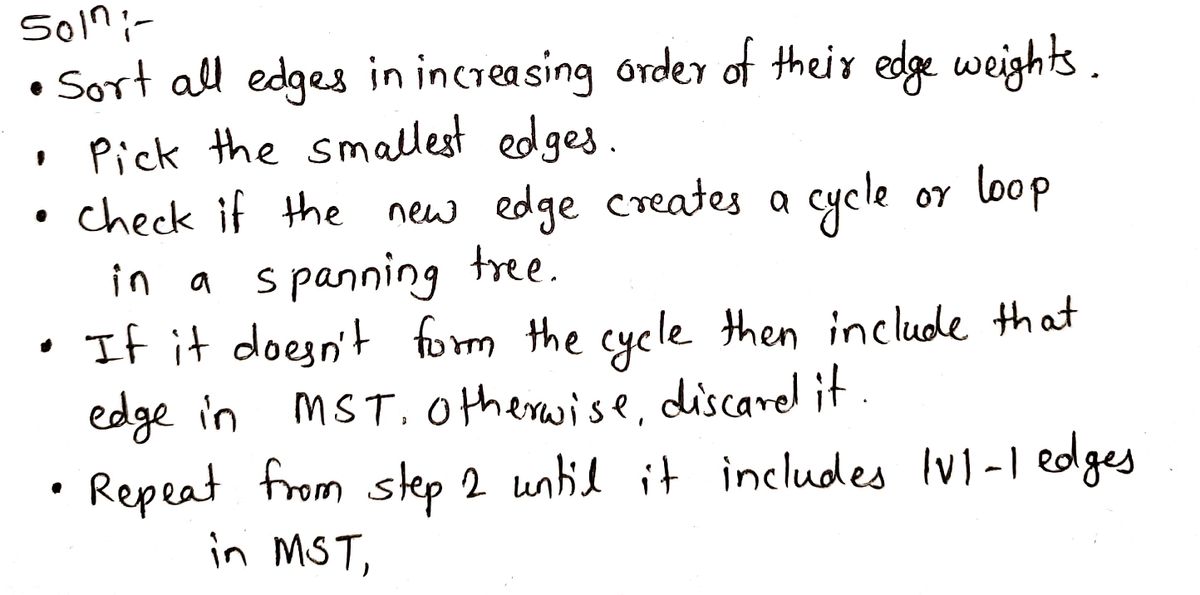 Soln:-
• Sort all edges in increasing order of their edge weights.
• Pick the smallest edges.
• check if the new edge creates a cycle or loop
in a spanning tree.
• If it doesn't form the cycle then include that
edge in MST. otherwise, discard it.
• Repeat from step 2 until it includes |V|-1 edges
in MST,